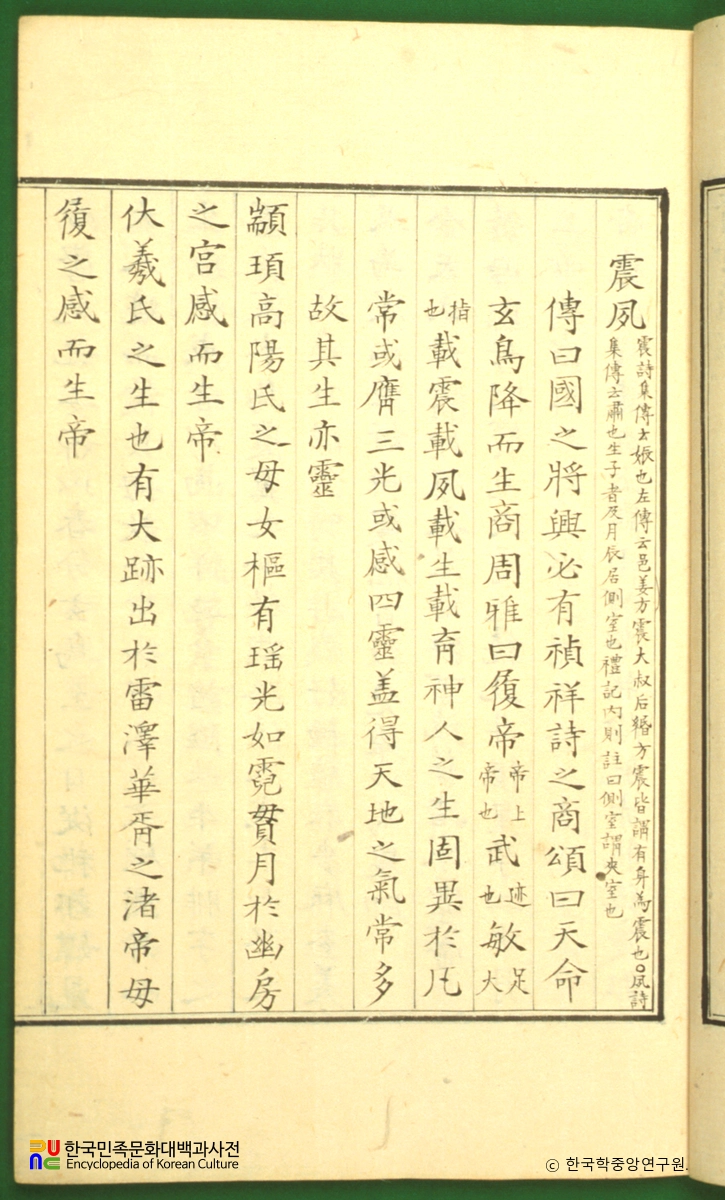 震夙 震詩集傳云娠也左傳云邑姜方震大叔后緡方震皆謂有身為震也○夙詩
集傳云肅也生子者及月辰居側室也禮記內則註曰側室謂夾室也
傳曰國之將興必有禎祥詩之商頌曰天命
玄鳥降而生商周雅曰履帝帝上帝也武迹也敏足大
指也載震載夙載生載育神人之生固異於凡
常或膺三光或感四靈盖得天地之氣常多
故其生亦靈
顓頊高陽氏之母女樞有瑶光如霓貫月於幽房
之宮感而生帝
伏羲氏之生也有大跡出於雷澤華胥之渚帝母
履之感而生帝
한국민족문화대백과사전
Encyclopedia of Korean Culture
© 한국학중앙연구원.